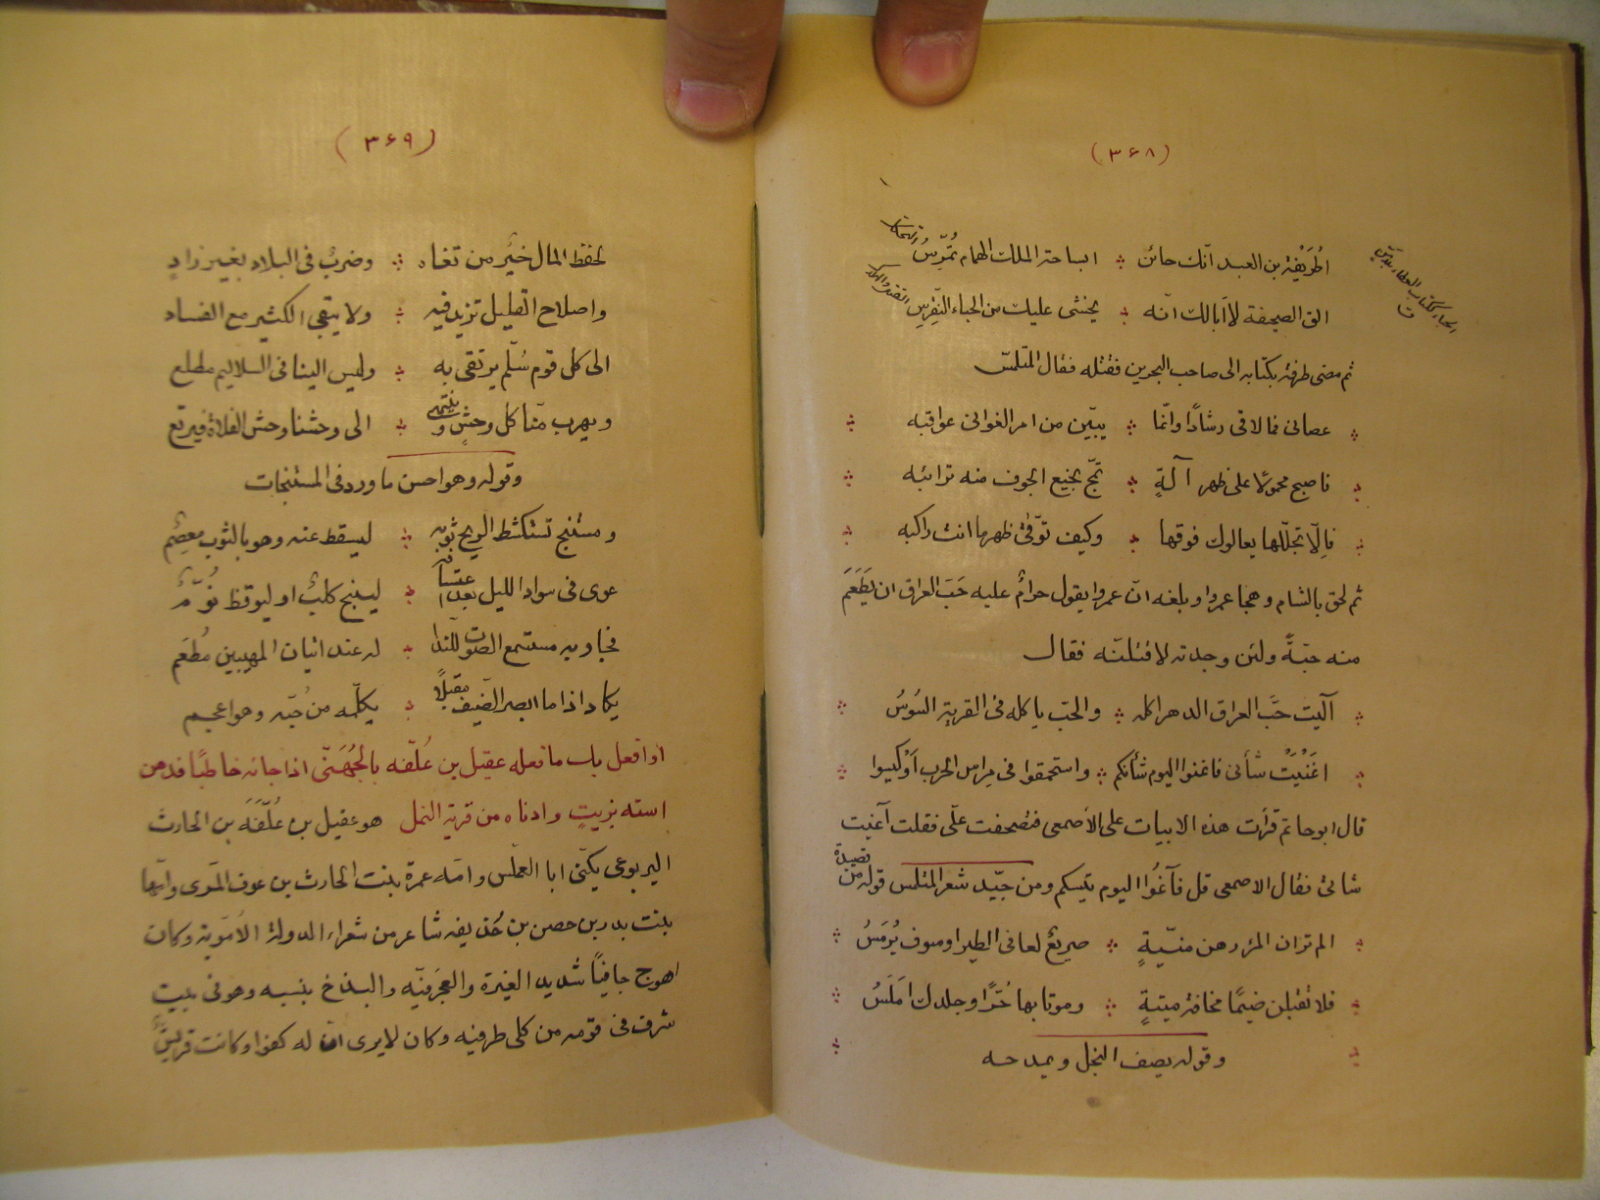 (٣۶٨)
اطريفة بن العبد انّك حائن ؞ ابساحة الملك الهمام تمرّسُ
الق الصحيفة لا ابا لك انّه ؞ يخشى عليك من الحباء النّقرِس
ثم مضى طرفة بكتابه الى صاحب البحرين فقتله فقال المتلمّس
عصانى فما لاقى رشادًا وانّما ؞ يبيّن من امر الغوىّ عواقبه
فاصبح محمولا على ظهر آلةٍ ؞ تمجّ نجيع الجوف منه ترائبه
فالّا تجلّلها يعالوك فوقها ؞ وكيف توقّى ظهر ما انت راكبه
ثم لحق بالشام وهجا عمروا وبلغه انّ عمروا يقول حرامٌ عليه حَبّ العراق ان يَطْعَمَ
منه حبّةً ولئن وجدته لاقتلنّه فقال
آليت حَبّ العراق الدهر اكله ؞ والحبّ ياكله فى القرية السُوسُ
اغنَيْتُ شأنى فاغنوا اليوم شأنكم ؞ واستحمقوا فى مِراس الحرب اَوْ كيسوا
قال ابو حاتم قرأت هذه الابيات على الأصمعى فتصحفت علىّ فقلت أغنيت
شاتى فقال الاصمعى قل فآغنُوا اليوم تيسكم ومن جيّد شعر المتلمس قوله من قصيدة
الم تر ان المرْ رهن منيّةٍ ؞ صريعٌ لعافى الطير او سوف يُرمَسُ
فلا تقبلن ضيمًا مخافة ميتةٍ ؞ وموتا بها حُرًّا وجلدك املَسُ
وقوله يصف البخل ويمدحه
(٣۶٩)
لحفظ المال خيْرٌ من تفاه ؞ وضربٌ فى البلاد بغير زادٍ
واصلاح القليل تزيد فيه ؞ ولا يبقى الكثير مع الفساد
الى كل قوم سُلّم يرتقى به ؞ وليس الينا فى السلاليم مطلع
ويهرب منّا كل وحشٍ وينتمى ؞ الى وحشنا وحش الفلاة فيرتع
وقوله وهو احسن ما ورد فى المستنبحات
ومستنبح تستكشط الريح ثوبه ؞ ليسقط عنه وهو بالثوب معصِمٌ
عوى فى سواد الليل بعد اعتسافه ؞ لينبح كلبٌ او ليوقظ نُوّمُ
فجاوبه مستسمع الصّوت للندا ؞ له عند اتيان المهبيّن مُطْعَم
يكاد اذا ما ابصر الضّيف مقبلًا ؞ يكلّمه من حُبّه وهو اعجم
او افعل بك ما فعله عقيل بن عُلّفه بالجُهَنّى اذا جائه خاطبًا فدهن
استه بزيتٍ وادناه من قرية النمل هو عقيل بن عُلّفَه بن الحارث
اليربوعى يكنّى ابا العملّس وامّه عمرة بنت الحارث بن عوف المرّى وامّها
بنت بدر بن حصن بن حُذيفه شاعر من شعراء الدولة الأمَوية وكان
اهوج جافيًا شديد الغيرة والعجرفيّه والبذخ بنسبه وهو فى بيت
شرف فى قومه من كلى طرفيه وكان لا يرى انّ له كفوا وكانت قريش